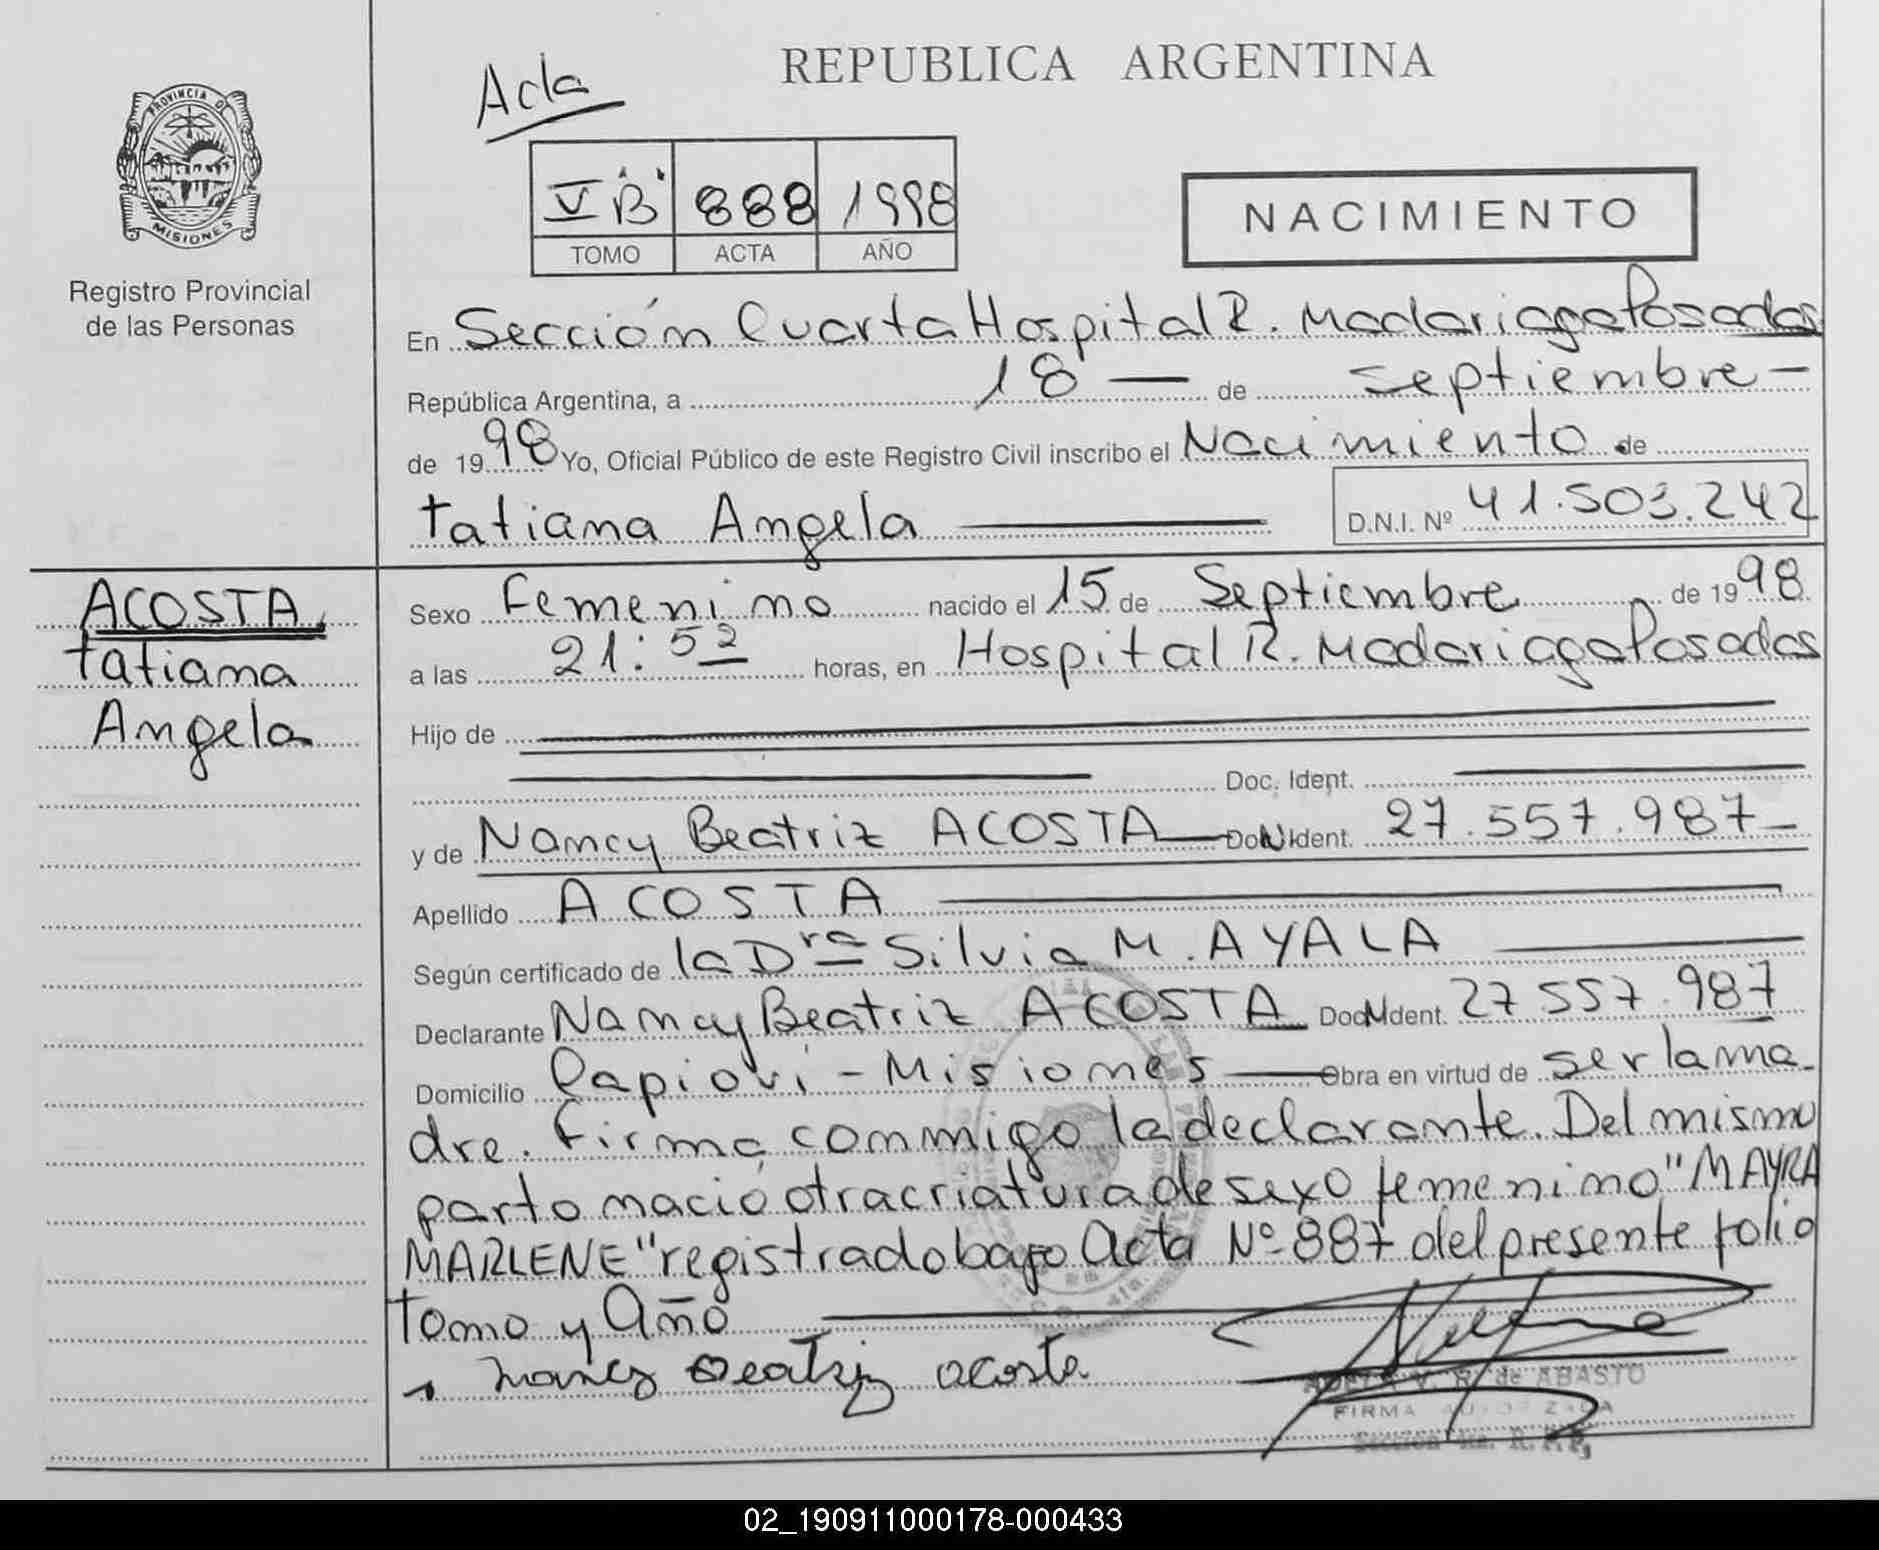 REPUBLICA ARGENTINA
Acta
PROVINCIA DE
MISIONES
Registro Provincial
de las Personas
V "B" 888 1998
TOMO ACTA AÑO
NACIMIENTO
En Sección Cuarta Hospital R. Madariaga Posadas
República Argentina, a 18 — de septiembre —
de 1998 Yo, Oficial Público de este Registro Civil inscribo el Nacimiento de
tatiana Angela
D.N.I. Nº 41.503.242
ACOSTA
tatiana
Angela
Sexo Femenino nacido el 15 de Septiembre de 1998
a las 21:52 horas, en Hospital R. Madariaga Posadas
Hijo de
Doc. Ident.
y de Nancy Beatriz ACOSTA — DocN Ident. 27.557.987 —
Apellido ACOSTA
Según certificado de la Dra Silvia M. AYALA
Declarante Nancy Beatriz ACOSTA DocN Ident. 27 557.987
Domicilio Capioví - Misiones — Obra en virtud de ser la ma-
dre. Firma conmigo la declarante. Del mismo
parto nació otra criatura de sexo femenino "MAYRA
MARLENE" registrado bajo Acta Nº 887 del presente folio
tomo y Año
nancy Beatriz acosta
V. R. de ABASTO
FIRMA AUTORIZADA
Sección 4ta. R. P. P.
02_190911000178-000433